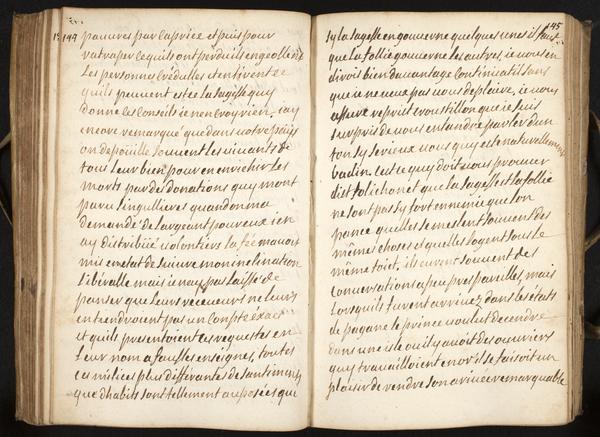 144
pauures par caprice et puis pour
ratraper ce quils ont perdu ils engeollent
Les personnes credulles et en tirent ce
quils peuuent est ce la sagesse quy
donne ces conseils ie nen croy rien. iay
encore remarqué que dans notre païs
on depoüille souuent les viuants de
tout leur bien pour en enrichir les
morts par des donations quy mont
paru singullieres quand on ma
demandé de largeant pour eux ien
ay distribüé volontiers la fée mauoit
mis en etat de suiure mon inclination
liberalle mais ie nay pas laissé de
panser que leurs receueurs ne leurs
en tiendroient pas un conpte exact
et quils presentoient ces requestes en
leur nom a fausses enseignes, toutes
ces milices plus differantes de santiments
que dhabits sont tellement auposées que
145
sy la sagesse en gouuerne quelques unes il faut
que la follie gouuerne les autres, ie uous en
dirois bien dauantage continuat il sans
que ie ne ueux pas uous deplaire, ie uous
assure reprit croustillon que ie suis
surpris de uous entandre parler dun
ton sy serieux uous quy este naturellement
badin. cest ce quy doit uous prouuer
dit folichon et que la sagesse et la follie
ne sont pas sy fort ennemie que lon
pance quelles se meslent souuent des
mêmes choses et quelles logent sous le
même toict. ils eurent souuent des
conuersations a peu pres pareilles, mais
lorsquils furent arriuez dans les états
de pagane le prince uoulut decendre
dans une isle ou il y auoit des ouuriers
quy trauailloient en or il se faisoit un
plaisir de rendre son ariuée remarquable